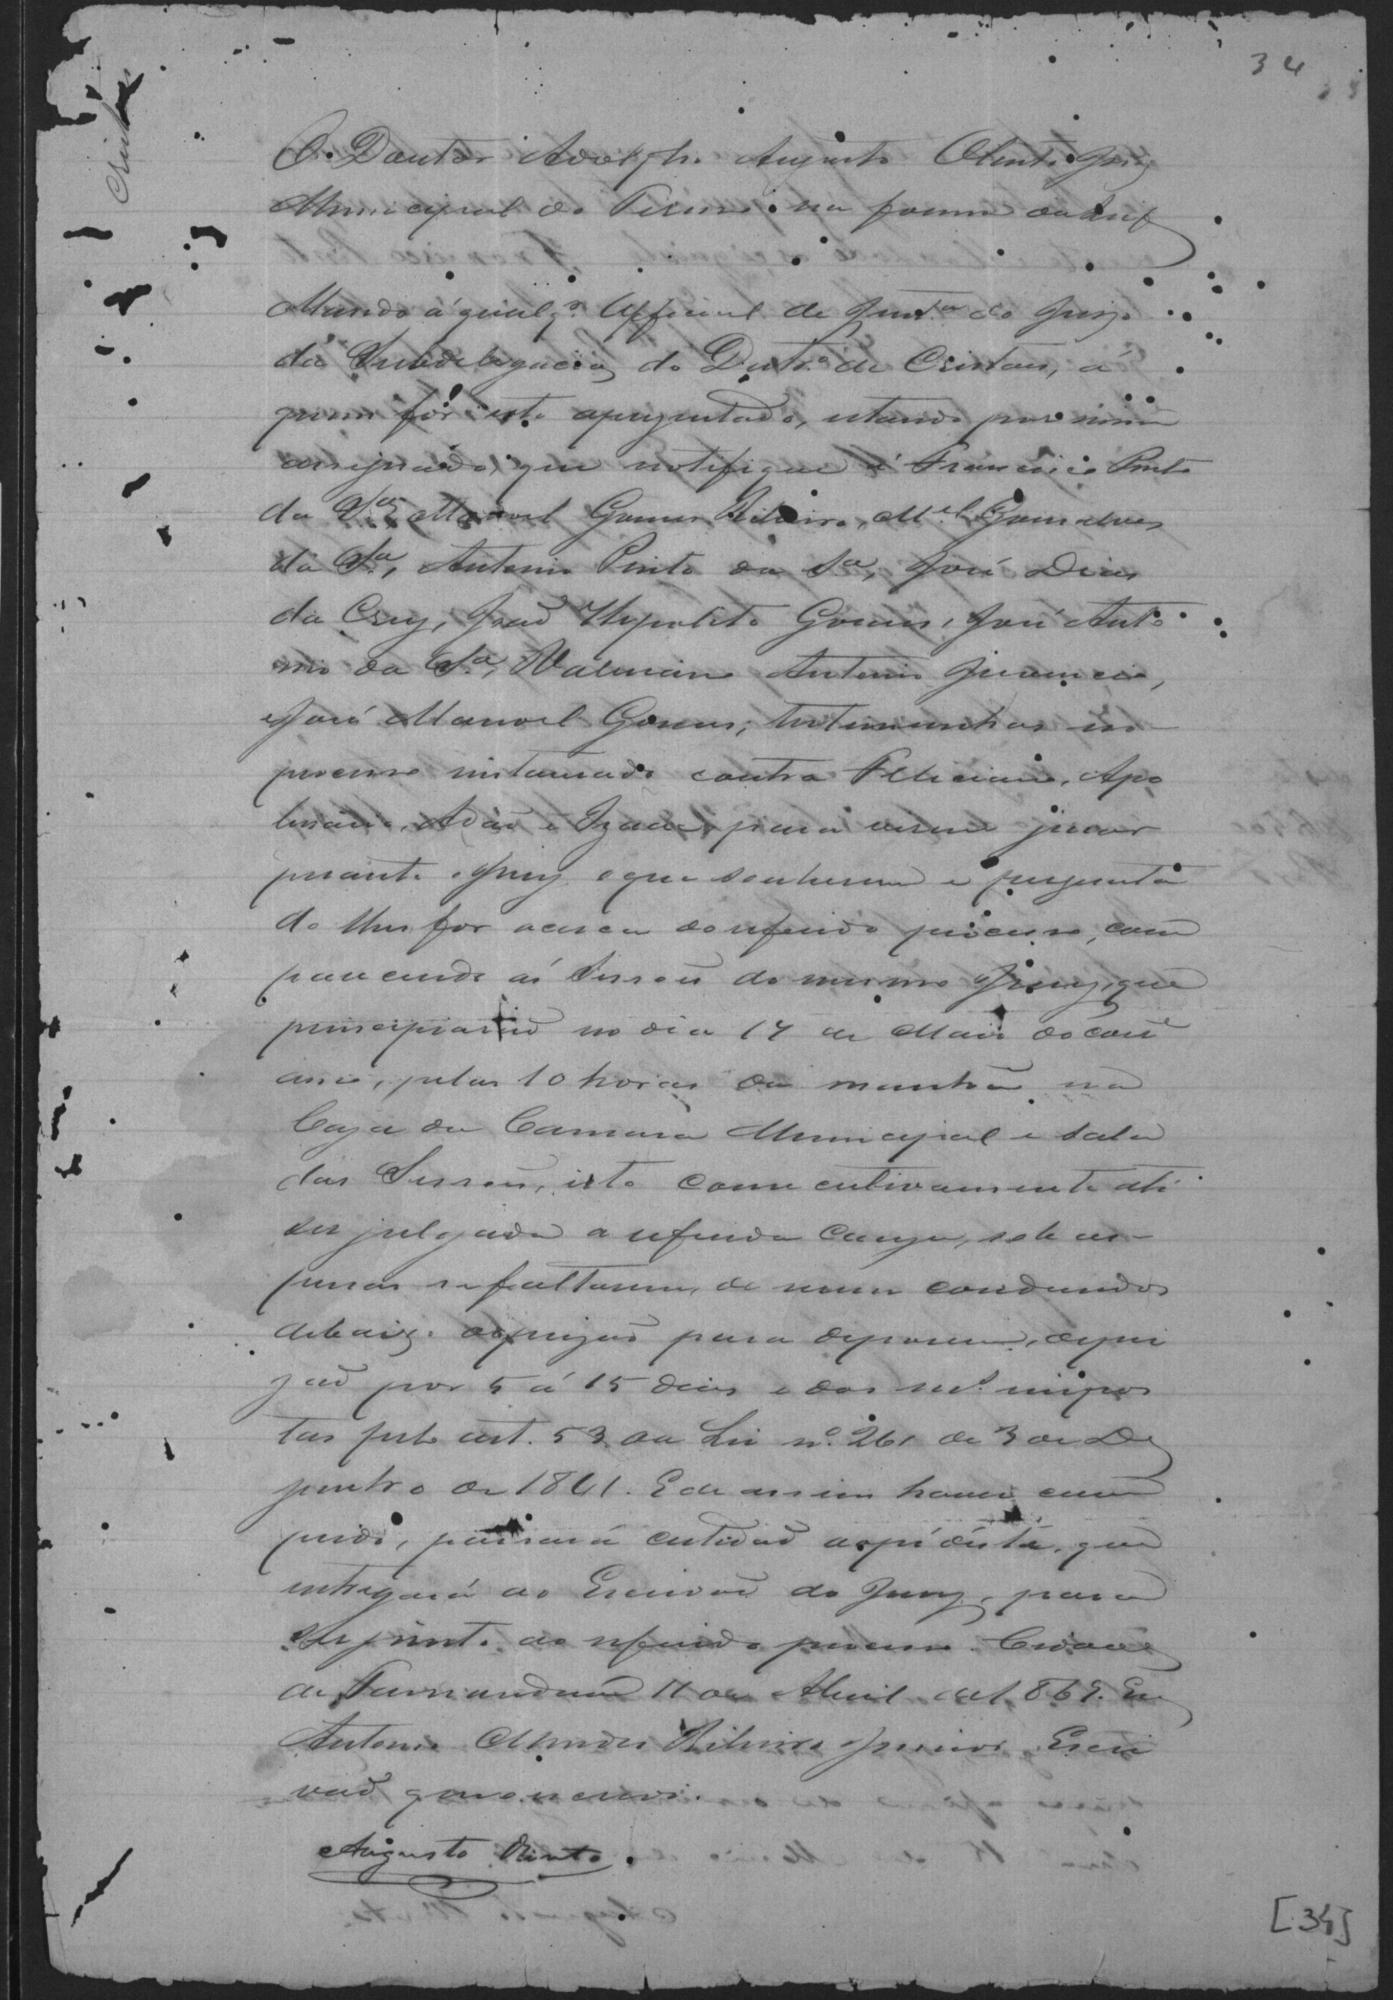 34
Cristaes
O Doutor Adolpho Augusto Olinto, Juiz
Municipal do Termo na forma da Lei &
Mando á qualqr Official de Justa do Juizo
da Subdelegacia do Distro de Cristaes, á
quem for este aprezentado, estando por mim
assignado, que notifique á Francisco Pinto
da Sa, Manoel Gomes Ribeiro, Mel Gonsalves
da Sa, Antonio Pinto da Sa, José Dias
da Cruz, João Hypolito Gomes, José Anto
nio da Sa, Valeriano Antonio Juvencio,
e José Manoel Gomes, testemunhas no
processo instaurado contra Feliciano, Apo
linario, Adão e Izaac, para virem jurar
perante o Jury o que souberem e pergunta
do lhes for acerca do referido processo, com
parecendo ás Sessoẽs do mesmo Jury, que
principiaraõ no dia 14 de Maio do corre
anno, pelas 10 horas da manhã na
Caza da Camara Municipal e sala
das Sessoẽs, isto consecutivamente até
ser julgada a referida cauza, sob as
penas se faltarem, de serem condusidos
debaixo de prizaõ para deporem, de pri
zaõ por 5 á 15 dias e das mas impos
tas pelo art. 53 da Lei no 261 de 3 de De
zembro de 1841. E de assim haver cum
prido, passará certidaõ ao pé désta, que
entregará ao Escrivaõ do Jury, para
ser junto ao referido processo. Cidade
de Tamanduá 11 de Abril de 1869. Eu
Antonio Mendes Ribeiro Junior, Escri
vaõ que o escrevi.
Augusto Olinto.
[34]